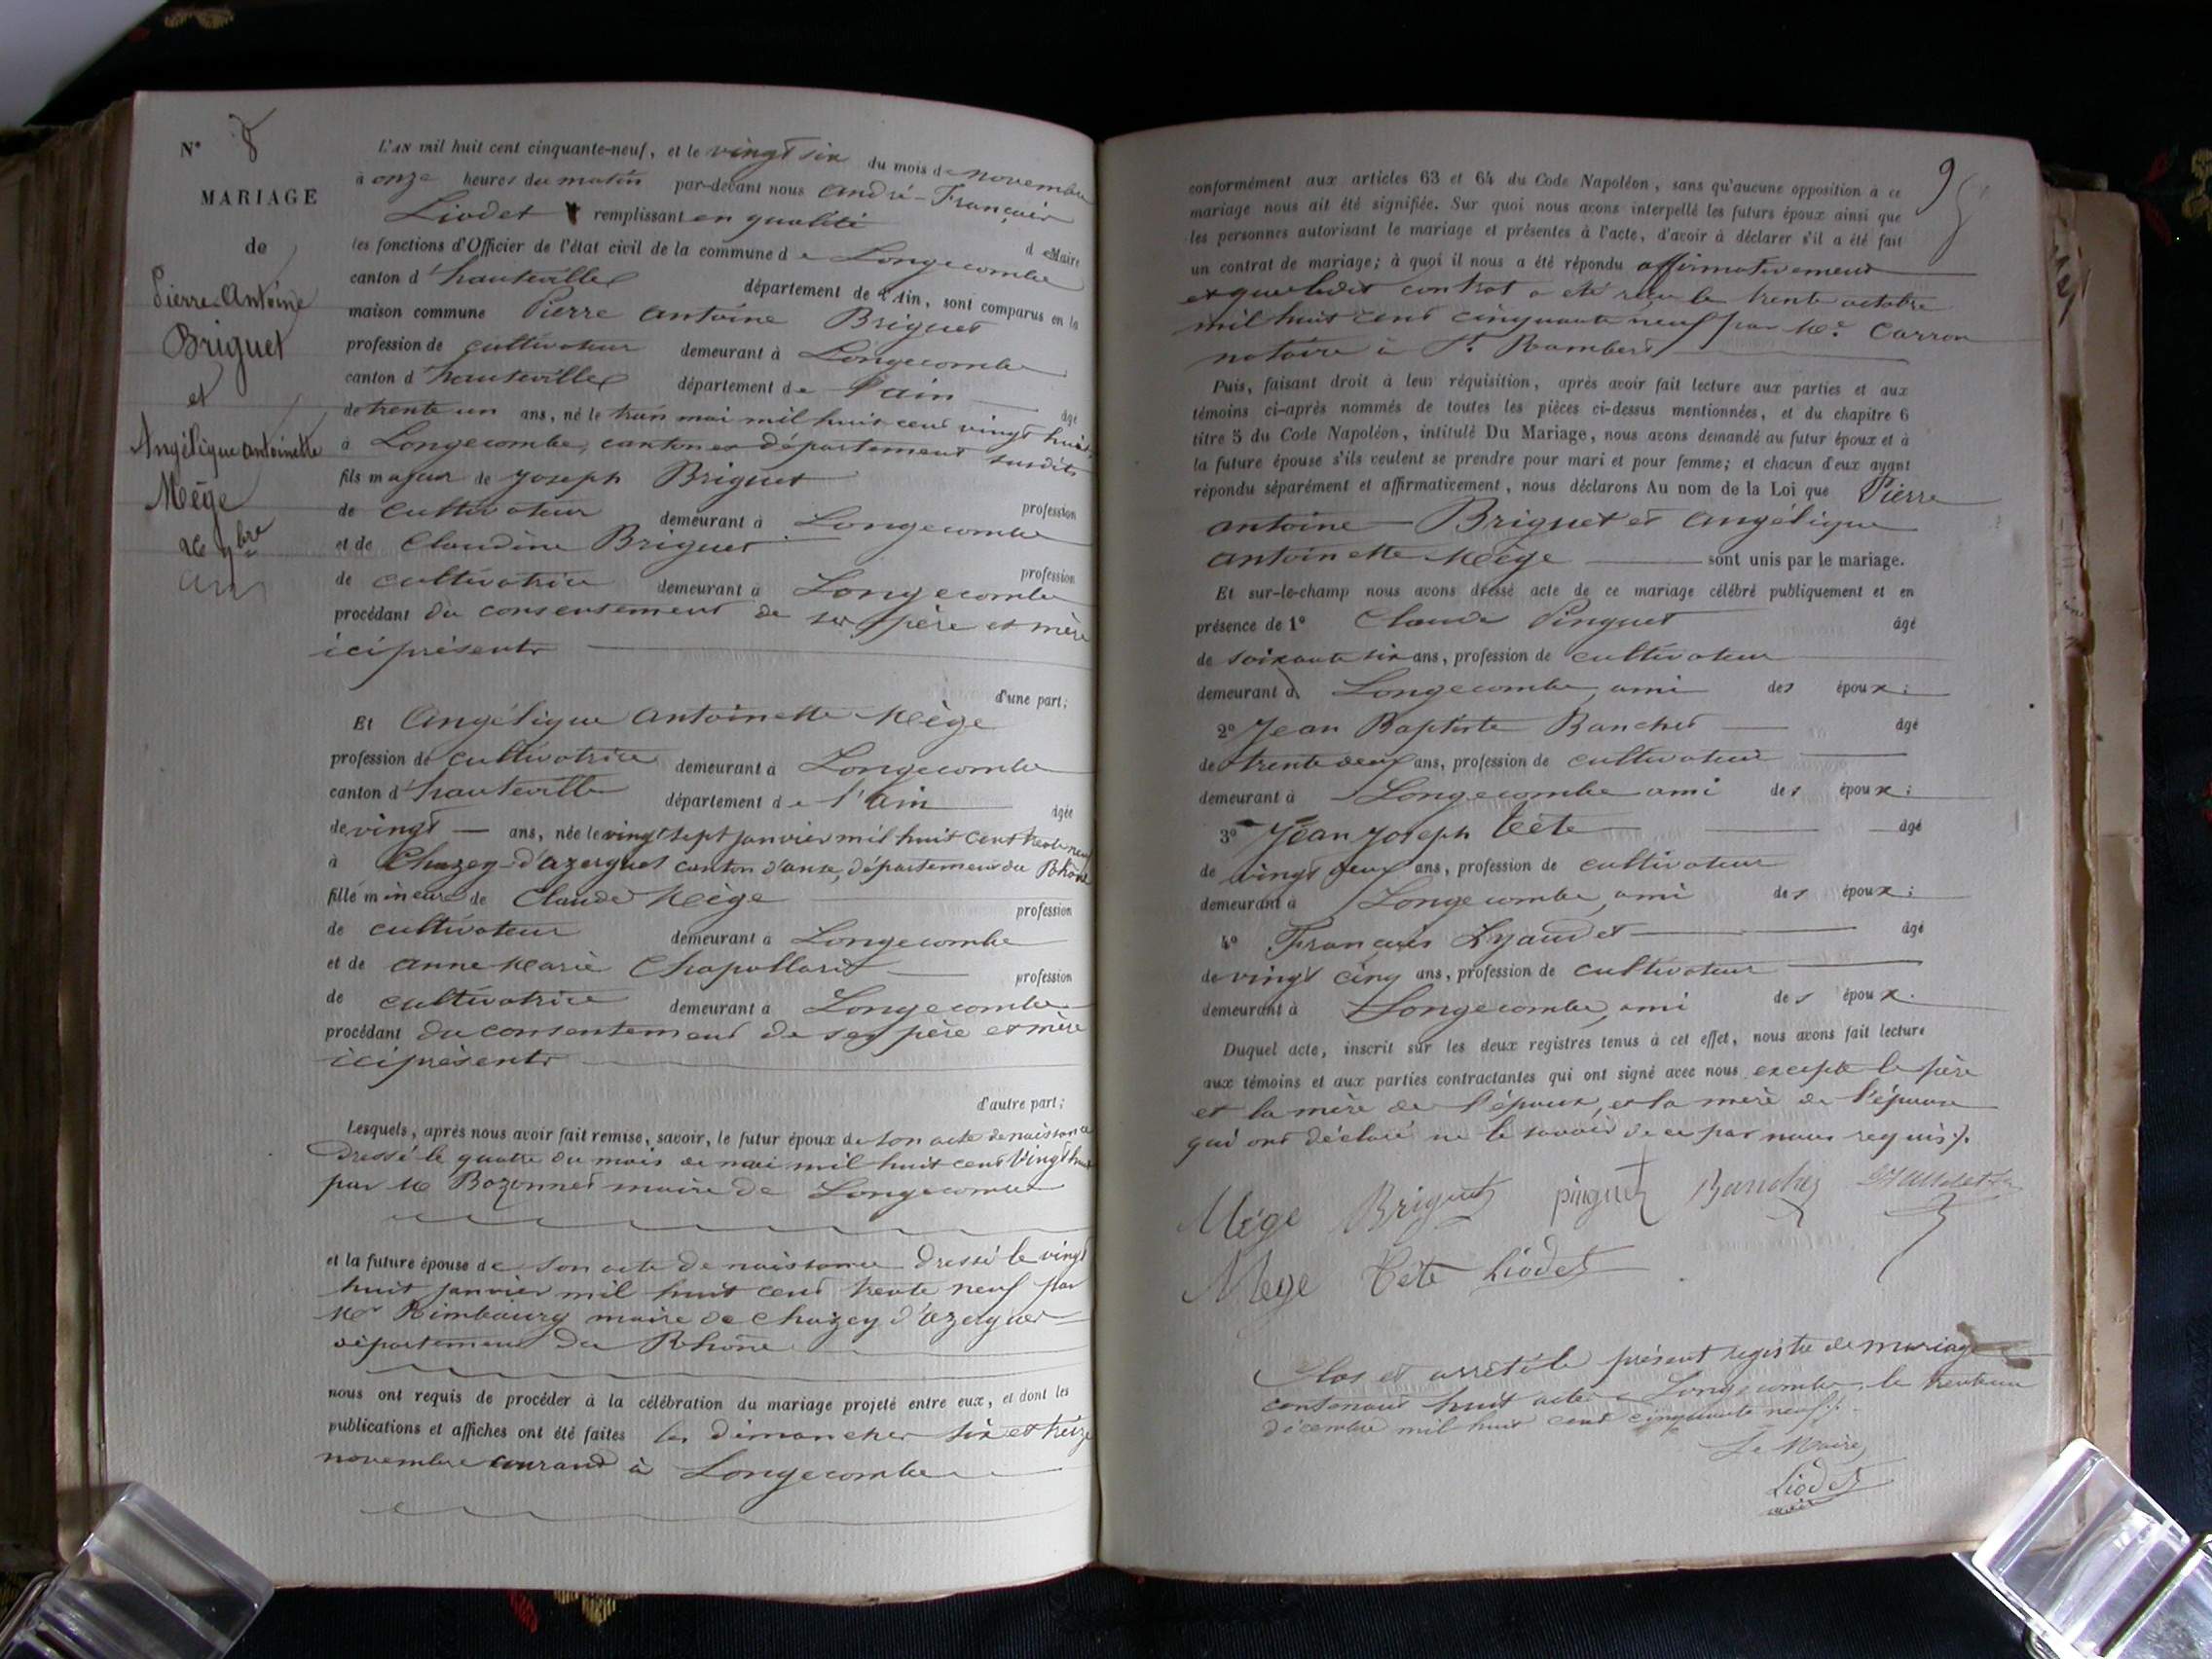 N° 8
MARIAGE
de
Pierre-Antoine
Briguet
et
Angélique antoinette
Mège
L'AN mil huit cent cinquante-neuf, et le vingt six du mois de novembre
à onze heures du matin par-devant nous andré-François
Liodet remplissant en qualité de Maire
les fonctions d'Officier de l'état civil de la commune de Longecombe
canton d'hauteville département de l'Ain, sont comparus en la
maison commune Pierre antoine Briguet
profession de cultivateur demeurant à Longecombe
canton d'hauteville département de l'ain âgé
de trente un ans, né le trois mai mil huit cent vingt huit
à Longecombe, canton et département susdits
fils majeur de Joseph Briguet profession
de cultivateur demeurant à Longecombe
et de Claudine Briguet profession
de cultivatrice demeurant à Longecombe
procédant du consentement de ses père et mère
ici présents
d'une part;
Et Angélique antoinette Mège
profession de cultivatrice demeurant à Longecombe
canton d'hauteville département de l'ain âgée
de vingt ans, née le vingt sept janvier mil huit cent trente neuf
à Chazey-d'azergues canton d'anse, département du Rhône
fille mineure de Claude Mège profession
de cultivateur demeurant à Longecombe
et de anne Marie Chapollard profession
de cultivatrice demeurant à Longecombe
procédant du consentement de ses père et mère
ici présents
d'autre part;
Lesquels, après nous avoir fait remise, savoir, le futur époux de son acte de naissance
dressé le quatre du mois de mai mil huit cent vingt huit
par Mr Bozonnet maire de Longecombe
et la future épouse de son acte de naissance dressé le vingt
huit janvier mil huit cent trente neuf par
Mr Rimbourg maire de Chazey d'azergues
département du Rhône
nous ont requis de procéder à la célébration du mariage projeté entre eux, et dont les
publications et affiches ont été faites les dimanches six et treize
novembre courant à Longecombe
9
conformément aux articles 63 et 64 du Code Napoléon, sans qu'aucune opposition à ce
mariage nous ait été signifiée. Sur quoi nous avons interpellé les futurs époux ainsi que
les personnes autorisant le mariage et présentes à l'acte, d'avoir à déclarer s'il a été fait
un contrat de mariage; à quoi il nous a été répondu affirmativement
et que ledit contrat a été reçu le trente octobre
mil huit cent cinquante neuf par Me Carron
notaire à St. Rambert
Puis, faisant droit à leur réquisition, après avoir fait lecture aux parties et aux
témoins ci-après nommés de toutes les pièces ci-dessus mentionnées, et du chapitre 6
titre 5 du Code Napoléon, intitulé Du Mariage, nous avons demandé au futur époux et à
la future épouse s'ils veulent se prendre pour mari et pour femme; et chacun d'eux ayant
répondu séparément et affirmativement, nous déclarons Au nom de la Loi que Pierre
antoine Briguet et Angélique
antoinette Mège sont unis par le mariage.
Et sur-le-champ nous avons dressé acte de ce mariage célébré publiquement et en
présence de 1° Claude Pinguet âgé
de soixante six ans, profession de cultivateur
demeurant à Longecombe, ami des époux;
2° Jean Baptiste Banchet âgé
de trente neuf ans, profession de cultivateur
demeurant à Longecombe ami des époux;
3° Jean Joseph Tête âgé
de vingt neuf ans, profession de cultivateur
demeurant à Longecombe, ami des époux;
4° François Lyaudet âgé
de vingt cinq ans, profession de cultivateur
demeurant à Longecombe, ami des époux.
Duquel acte, inscrit sur les deux registres tenus à cet effet, nous avons fait lecture
aux témoins et aux parties contractantes qui ont signé avec nous excepté le père
et la mère de l'époux, et la mère de l'épouse
qui ont déclaré ne le savoir de ce par nous requis.
Mége Briguet pinguet Banchet
Mege Tête Liodet
Clos et arrêté le présent registre de mariage
contenant huit actes à Longecombe, le trente un
décembre mil huit cent cinquante neuf.
Le Maire
Liodet